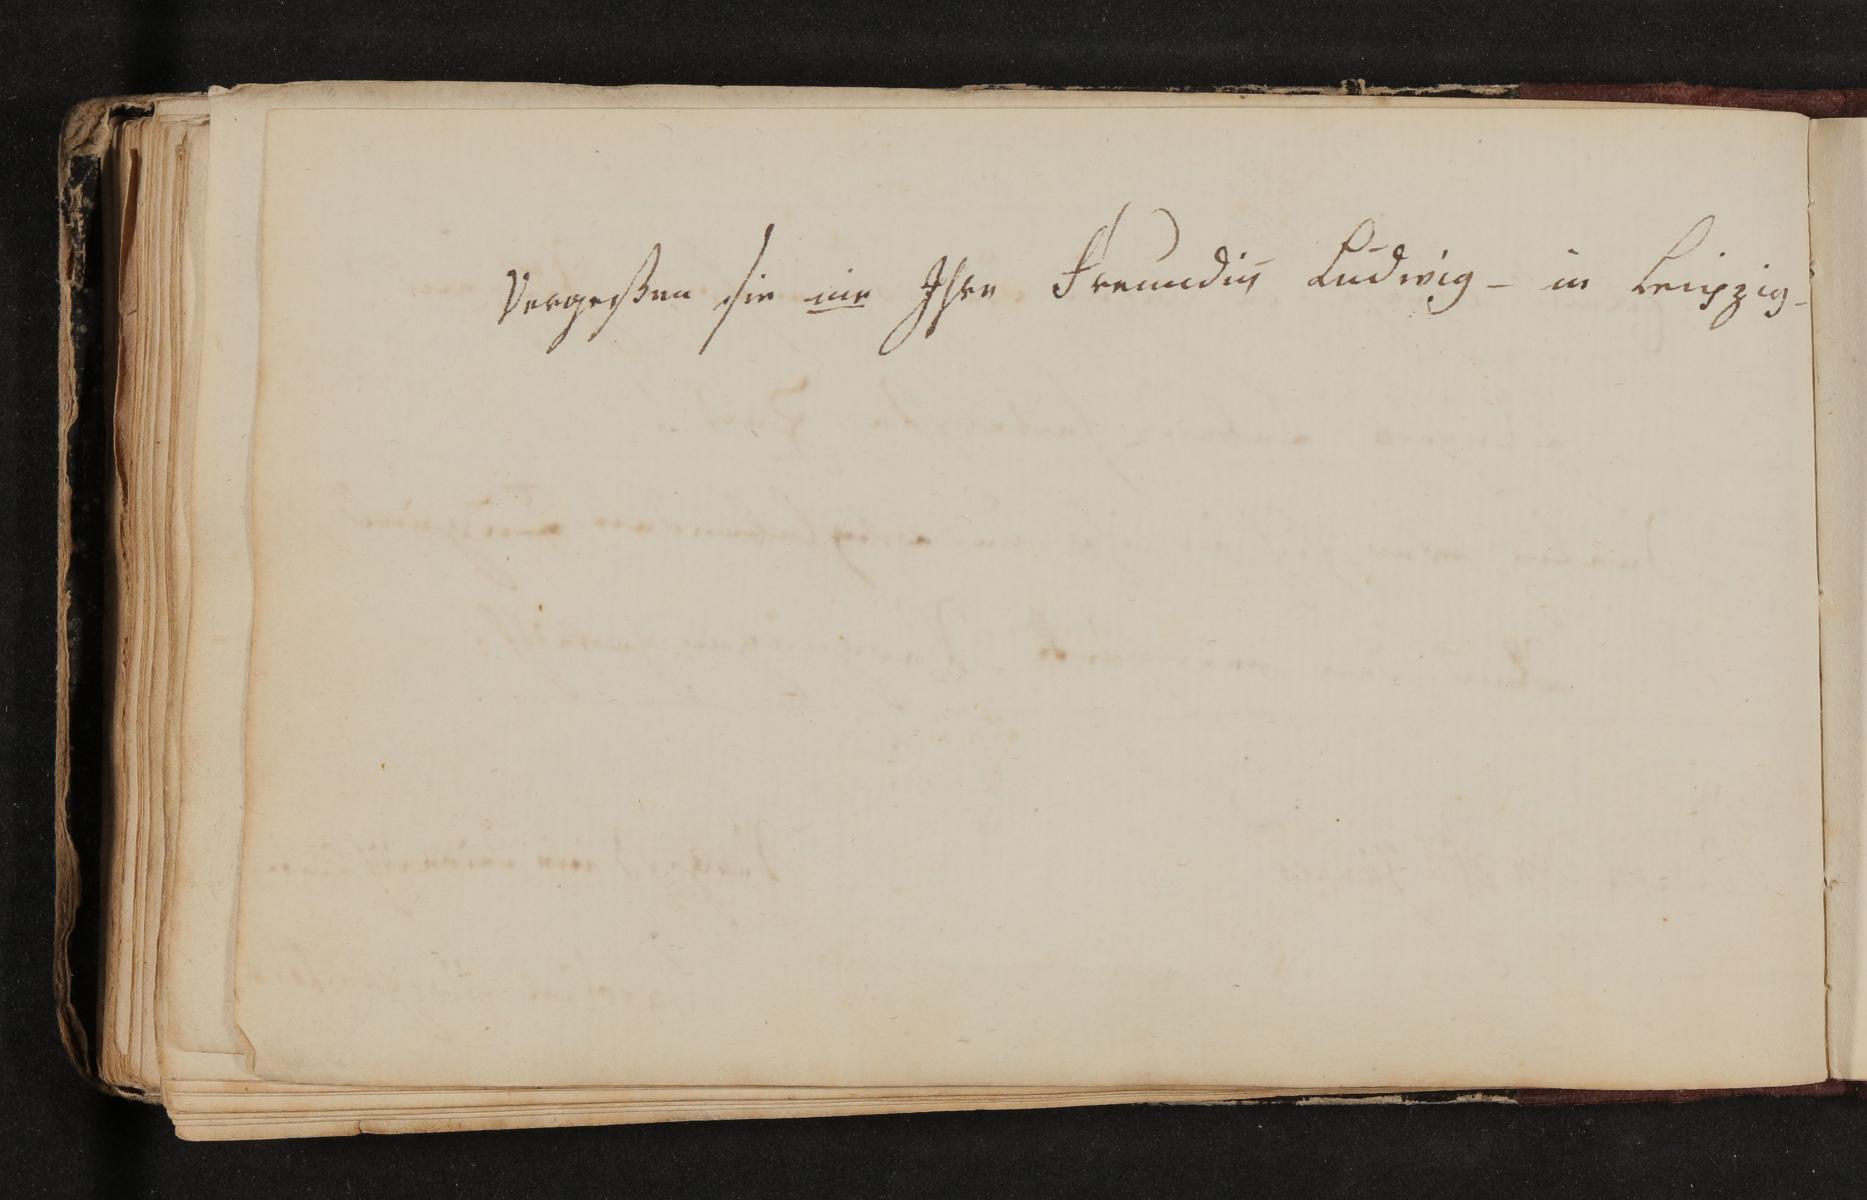 Vergeßen sie nie Ihre Freundin Ludwig – in Leipzig –